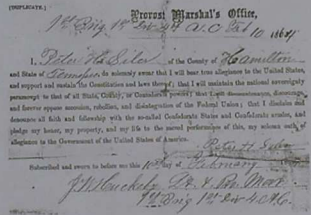 (DUPLICATE.)
Provost Marshal's Office,
1st Brig 1st Div 4th A.C. Feb 10 1864
I, Peter H. Siler of the County of Hamilton
and State of Tennessee do solemnly swear that I will bear true allegiance to the United States,
and support and sustain the Constitution and laws thereof; that I will maintain the national sovereignty
paramount to that of all State, County, or Confederate powers; that I will discountenance, discourage,
and forever oppose secession, rebellion, and disintegration of the Federal Union; that I disclaim and
denounce all faith and fellowship with the so-called Confederate States and Confederate armies, and
pledge my honor, my property, and my life to the sacred performance of this, my solemn oath of
allegiance to the Government of the United States of America.
Peter H. Siler
Subscribed and sworn to before me this 10th day of February
1st Brig 1st Div 4 A.C.